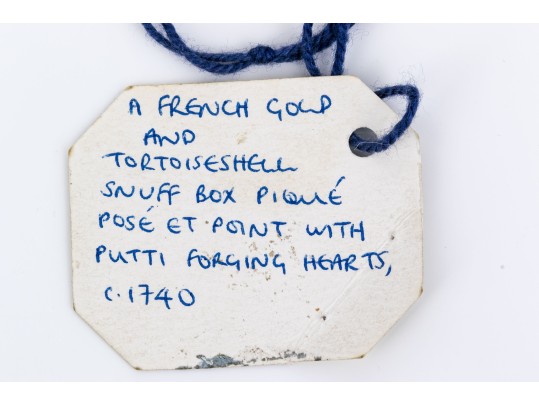 A FRENCH GOLD
AND
TORTOISESHELL
SNUFF BOX PIQUÉ
POSÉ ET POINT WITH
PUTTI FORGING HEARTS,
c.1740